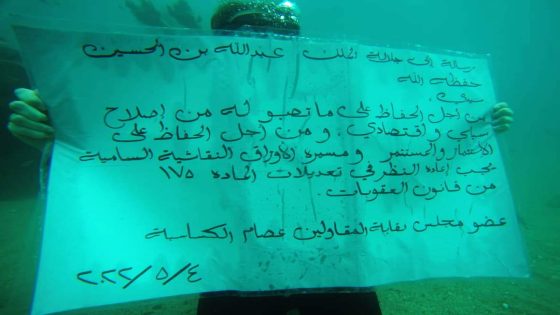 رسالة إلى جلالة الملك عبدالله بن الحسين
حفظه الله
سيدي،
من أجل الحفاظ على ما تصبو له من إصلاح
سياسي واقتصادي، ومن أجل الحفاظ على
الاستثمار والمستثمر ومسيرة الأوراق النقاشية السامية
يجب إعادة النظر في تعديلات المادة ١٧٥
من قانون العقوبات.
عضو مجلس نقابة المقاولين عصام الكساسبة
٢٠٢٢/٥/٤